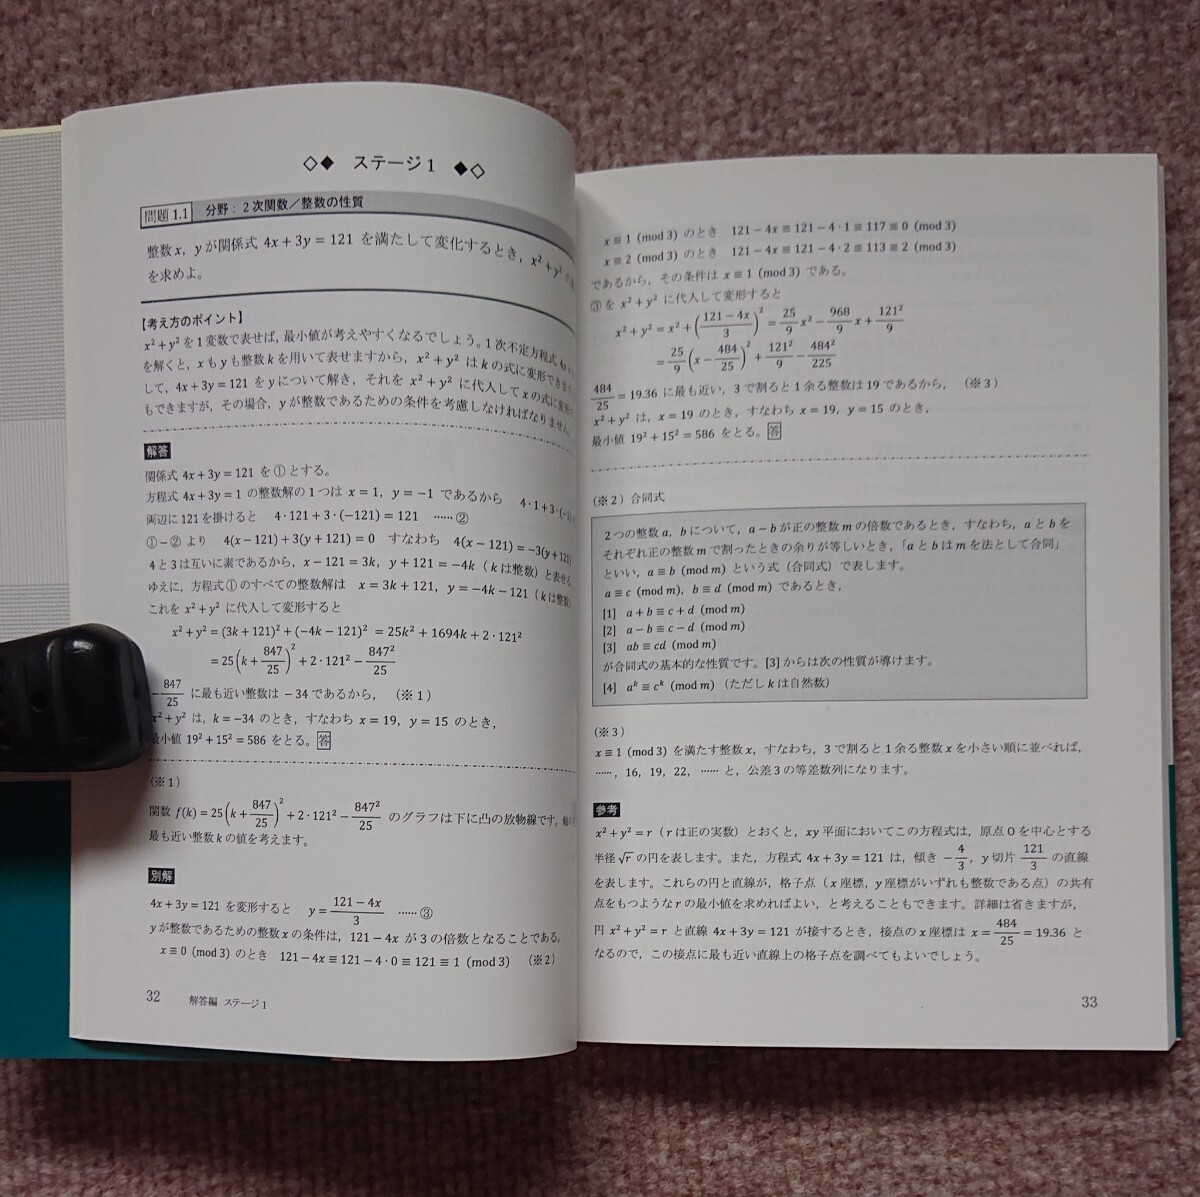 ◇◆ ステージ1 ◆◇
問題 1.1 分野：2次関数／整数の性質
整数 x，y が関係式 4x + 3y = 121 を満たして変化するとき，x² + y² の
を求めよ。
【考え方のポイント】
x² + y² を1変数で表せば，最小値が考えやすくなるでしょう。1次不定方程式 4x
を解くと，x も y も整数 k を用いて表せますから，x² + y² は k の式に変形でき
して，4x + 3y = 121 を y について解き，それを x² + y² に代入して x の式に変形
もできますが，その場合，y が整数であるための条件を考慮しなければなりません。
解答
関係式 4x + 3y = 121 を①とする。
方程式 4x + 3y = 1 の整数解の1つは x = 1，y = −1 であるから 4・1 + 3・(−1)
両辺に 121 を掛けると 4・121 + 3・(−121) = 121 ……②
①−②より 4(x − 121) + 3(y + 121) = 0 すなわち 4(x − 121) = −3(y + 121)
4 と 3 は互いに素であるから，x − 121 = 3k，y + 121 = −4k（k は整数）と表せる
ゆえに，方程式①のすべての整数解は x = 3k + 121，y = −4k − 121（k は整数）
これを x² + y² に代入して変形すると
x² + y² = (3k + 121)² + (−4k − 121)² = 25k² + 1694k + 2・121²
= 25(k + 847/25)² + 2・121² − 847²/25
−847/25 に最も近い整数は −34 であるから，（※1）
x² + y² は，k = −34 のとき，すなわち x = 19，y = 15 のとき，
最小値 19² + 15² = 586 をとる。答
（※1）
関数 f(k) = 25(k + 847/25)² + 2・121² − 847²/25 のグラフは下に凸の放物線です。
最も近い整数 k の値を考えます。
別解
4x + 3y = 121 を変形すると y = (121 − 4x)/3 ……③
y が整数であるための整数 x の条件は，121 − 4x が3の倍数となることである。
x ≡ 0 (mod 3) のとき 121 − 4x ≡ 121 − 4・0 ≡ 121 ≡ 1 (mod 3) （※2）
32 解答編 ステージ1
x ≡ 1 (mod 3) のとき 121 − 4x ≡ 121 − 4・1 ≡ 117 ≡ 0 (mod 3)
x ≡ 2 (mod 3) のとき 121 − 4x ≡ 121 − 4・2 ≡ 113 ≡ 2 (mod 3)
であるから，その条件は x ≡ 1 (mod 3) である。
③を x² + y² に代入して変形すると
x² + y² = x² + ((121 − 4x)/3)² = 25/9 x² − 968/9 x + 121²/9
= 25/9 (x − 484/25)² + 121²/9 − 484²/225
484/25 = 19.36 に最も近い，3で割ると1余る整数は19であるから，（※3）
x² + y² は，x = 19 のとき，すなわち x = 19，y = 15 のとき，
最小値 19² + 15² = 586 をとる。答
（※2）合同式
2つの整数 a，b について，a − b が正の整数 m の倍数であるとき，すなわち，a と b を
それぞれ正の整数 m で割ったときの余りが等しいとき，「a と b は m を法として合同」
といい，a ≡ b (mod m) という式（合同式）で表します。
a ≡ c (mod m)，b ≡ d (mod m) であるとき，
[1] a + b ≡ c + d (mod m)
[2] a − b ≡ c − d (mod m)
[3] ab ≡ cd (mod m)
が合同式の基本的な性質です。[3] からは次の性質が導けます。
[4] aᵏ ≡ cᵏ (mod m)（ただし k は自然数）
（※3）
x ≡ 1 (mod 3) を満たす整数 x，すなわち，3で割ると1余る整数 x を小さい順に並べれば，
……，16，19，22，…… と，公差3の等差数列になります。
参考
x² + y² = r（r は正の実数）とおくと，xy 平面においてこの方程式は，原点Oを中心とする
半径 √r の円を表します。また，方程式 4x + 3y = 121 は，傾き −4/3，y 切片 121/3 の直線
を表します。これらの円と直線が，格子点（x 座標，y 座標がいずれも整数である点）の共有
点をもつような r の最小値を求めればよい，と考えることもできます。詳細は省きますが，
円 x² + y² = r と直線 4x + 3y = 121 が接するとき，接点の x 座標は x = 484/25 = 19.36 と
なるので，この接点に最も近い直線上の格子点を調べてもよいでしょう。
33